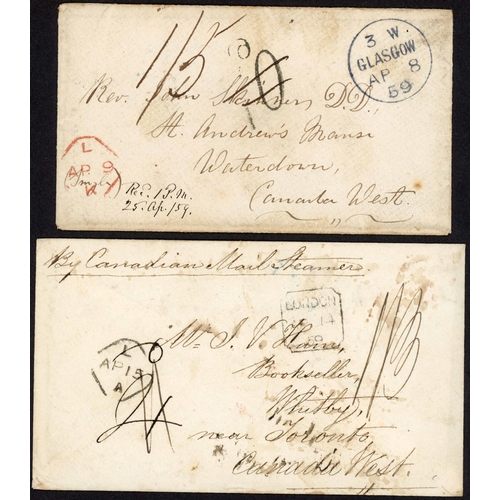 1/5
10
3 W.
GLASGOW
AP 8
59
Rev. John Skinner, D.D.,
St. Andrew's Manse
Waterdown,
Canada West.
L
AP 9
Rec. 1 P.M.
25. Ap./59.
By Canadian Mail Steamer.
LONDON
14
59
1/3
L
AP 15
A
Mr. J. V. Ham,
Bookseller,
Whitby,
near Toronto,
Canada West.